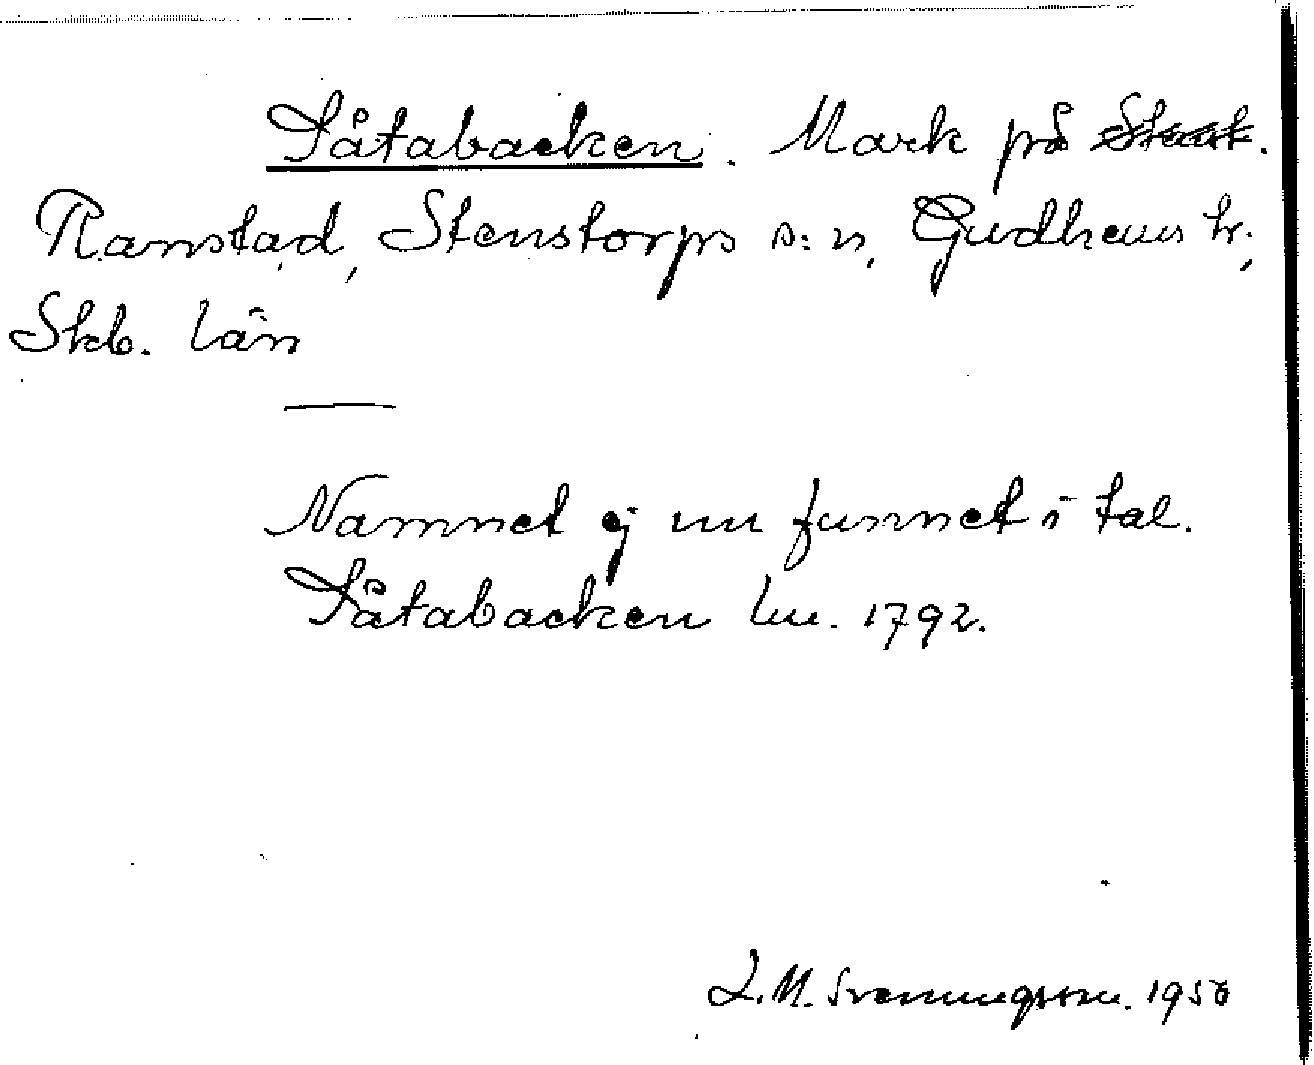 Såtabacken. Mark på
Ranstad, Stenstorps s:n, Gudhems hr.,
Skb. län
Namnet ej nu funnet i tal.
Såtabacken lm. 1792.
L.M. Svenungsson. 1956